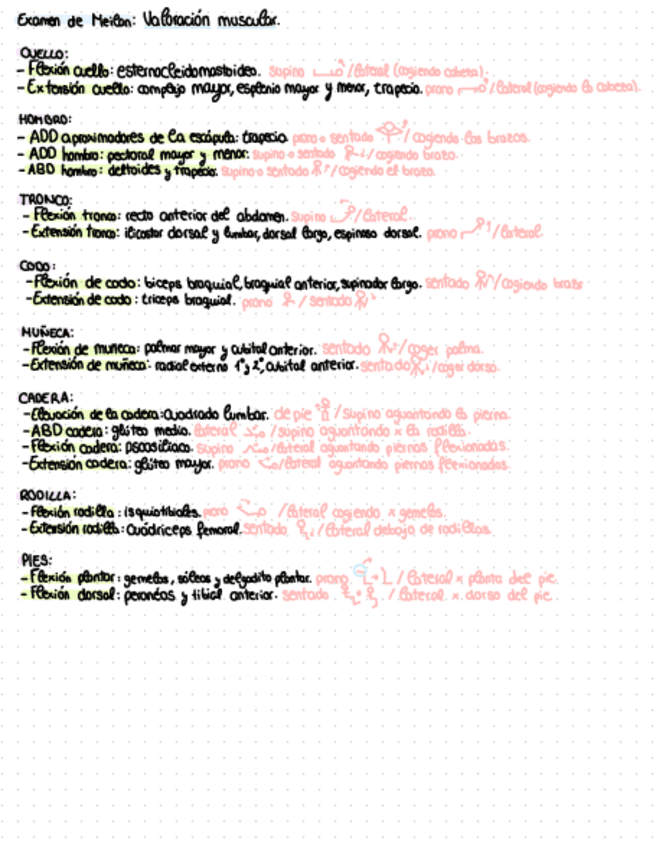 Examen de Meilan: Valoración muscular.
CUELLO:
- Flexión cuello: esternocleidomastoideo. supino /lateral (cogiendo cabeza).
- Extensión cuello: complejo mayor, esplenio mayor y menor, trapecio. prono /lateral (cogiendo la cabeza).
HOMBRO:
- ADD aproximadores de la escápula: trapecio. prono o sentado /cogiendo los brazos.
- ADD hombro: pectoral mayor y menor. supino o sentado /cogiendo brazo.
- ABD hombro: deltoides y trapecio. supino o sentado /cogiendo el brazo.
TRONCO:
- Flexión tronco: recto anterior del abdomen. supino /lateral.
- Extensión tronco: ilicostar dorsal y lumbar, dorsal largo, espinoso dorsal. prono /lateral
CODO:
- Flexión de codo: biceps braquial, braquial anterior, supinador largo. sentado /cogiendo brazo
- Extensión de codo: triceps braquial. prono / sentado
MUÑECA:
- Flexión de muñeca: palmar mayor y cubital anterior. sentado /coger palma.
- Extensión de muñeca: radial externo 1º y 2º, cubital anterior. sentado /coger dorso.
CADERA:
- Elevación de la cadera: cuadrado lumbar. de pie / supino aguantando la pierna.
- ABD cadera: glúteo medio. lateral /supino aguantando x la rodilla.
- Flexión cadera: psoasiliaco. supino /lateral aguantando piernas flexionadas.
- Extensión cadera: glúteo mayor. prono /lateral aguantando piernas flexionadas.
RODILLA:
- Flexión rodilla: isquiotibiales. prono /lateral cogiendo x gemelos.
- Extensión rodilla: cuádriceps femoral. sentado / lateral debajo de rodillas.
PIES:
- Flexión plantar: gemelos, sóleos y delgadito plantar. prono / lateral x planta del pie.
- Flexión dorsal: peronéos y tibial anterior. sentado / lateral x dorso del pie